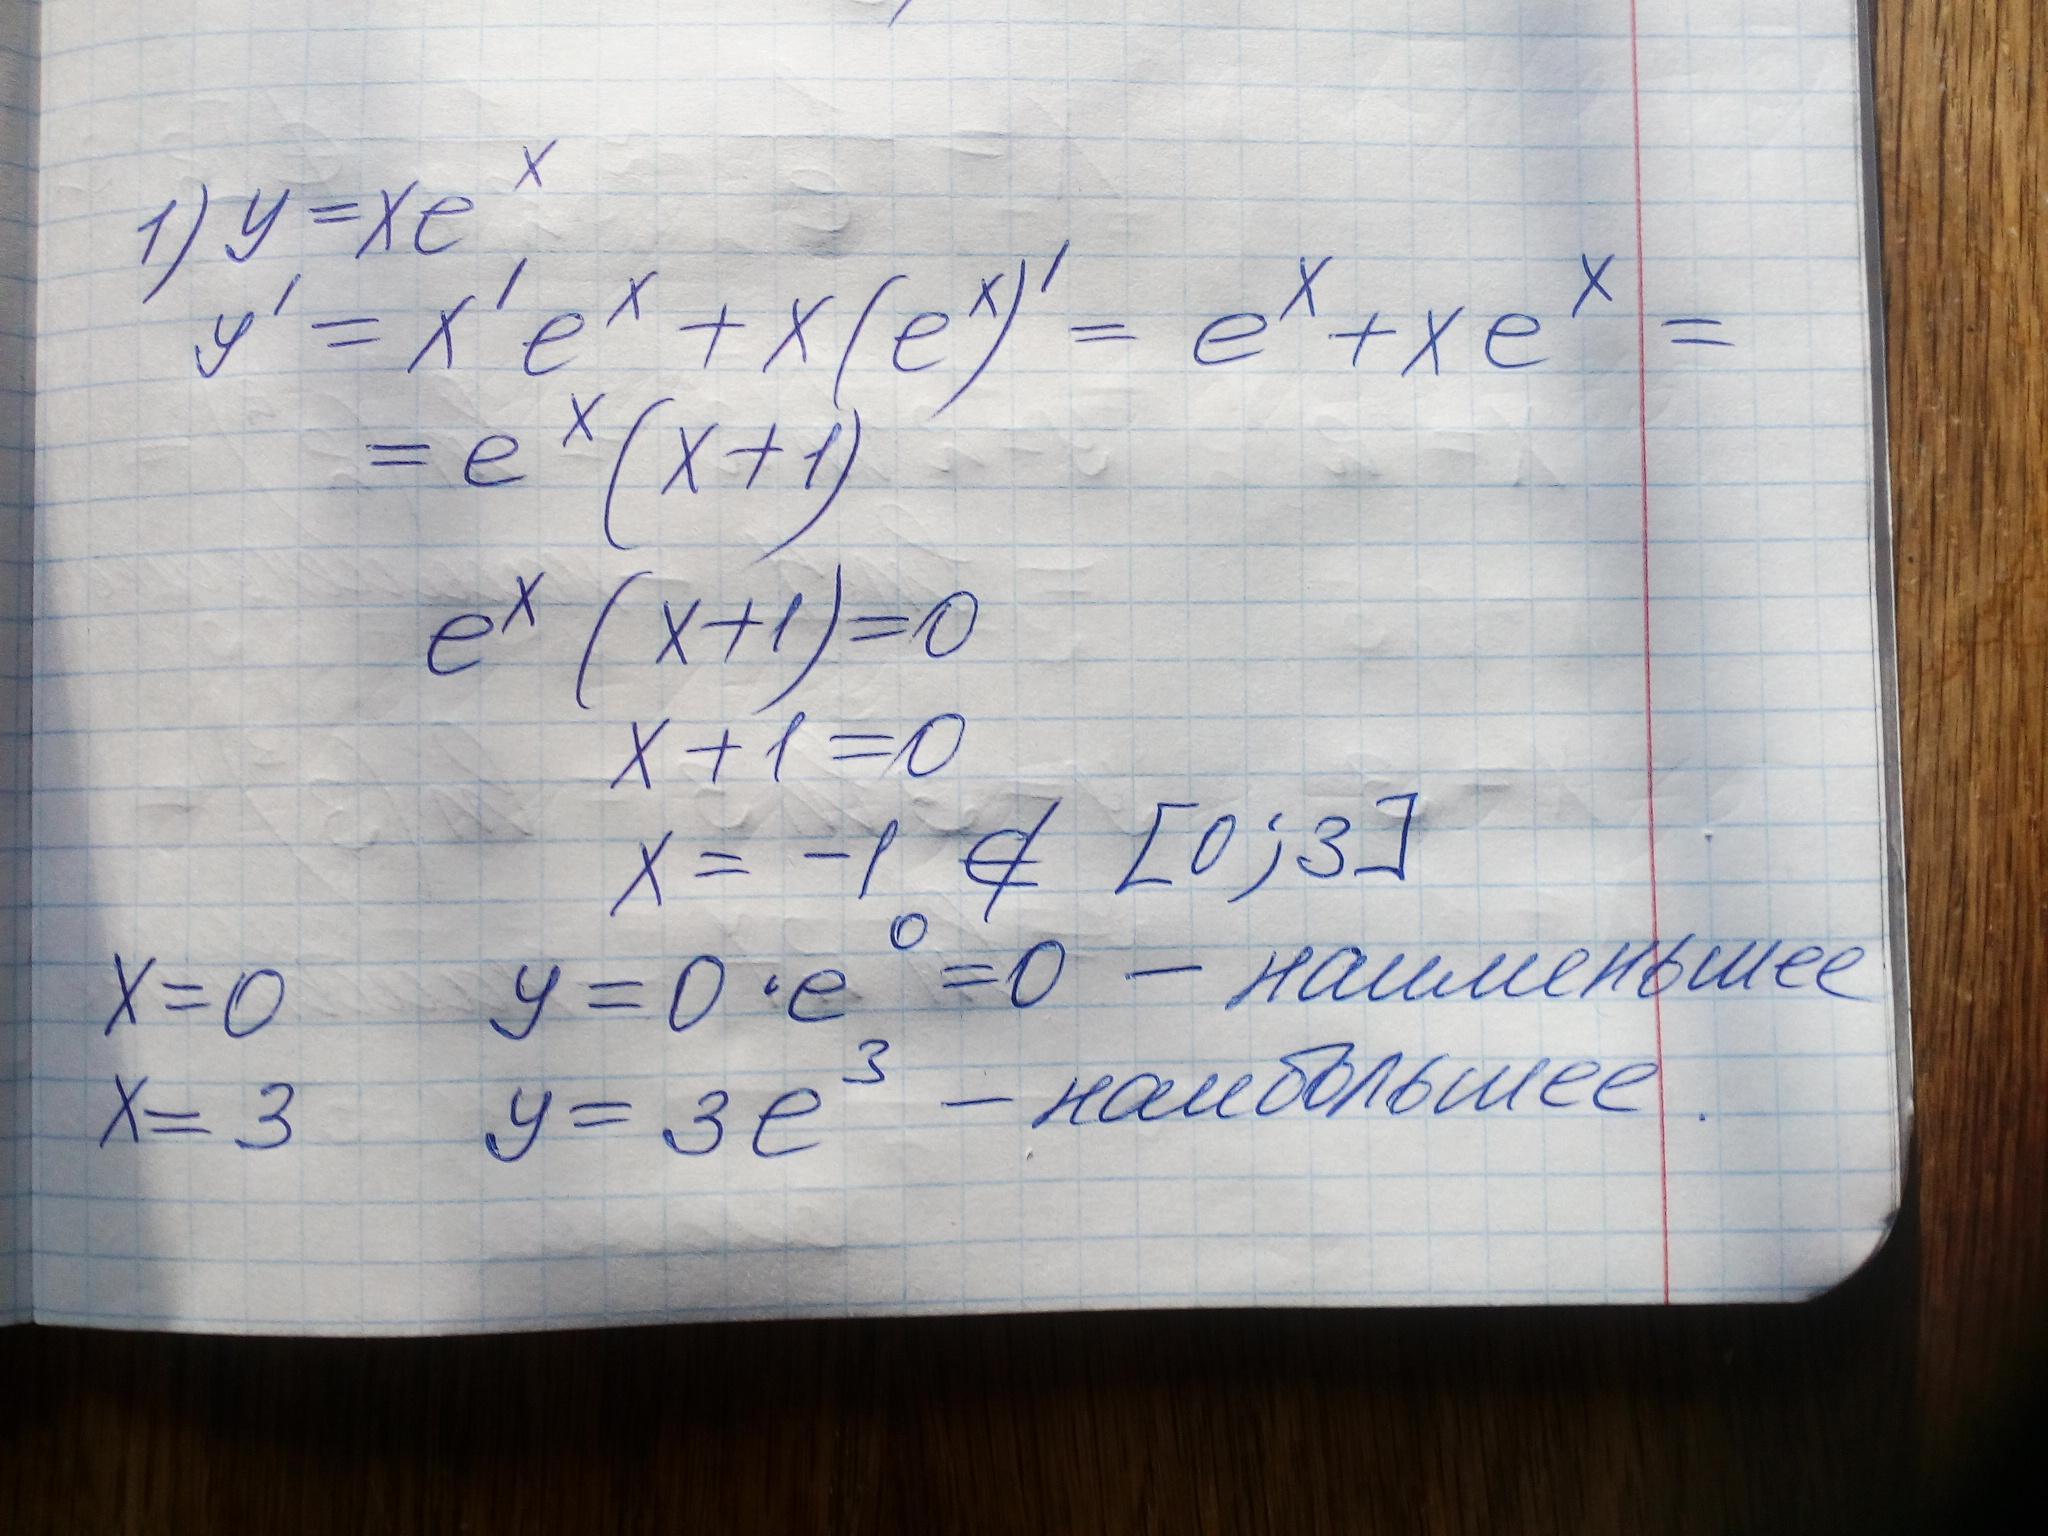 1) y = xeˣ
y' = x'eˣ + x(eˣ)' = eˣ + xeˣ =
= eˣ(x+1)
eˣ(x+1)=0
x+1=0
x = -1 ∉ [0;3]
x=0 y=0·e⁰=0 — наименьшее
x=3 y=3e³ — наибольшее.